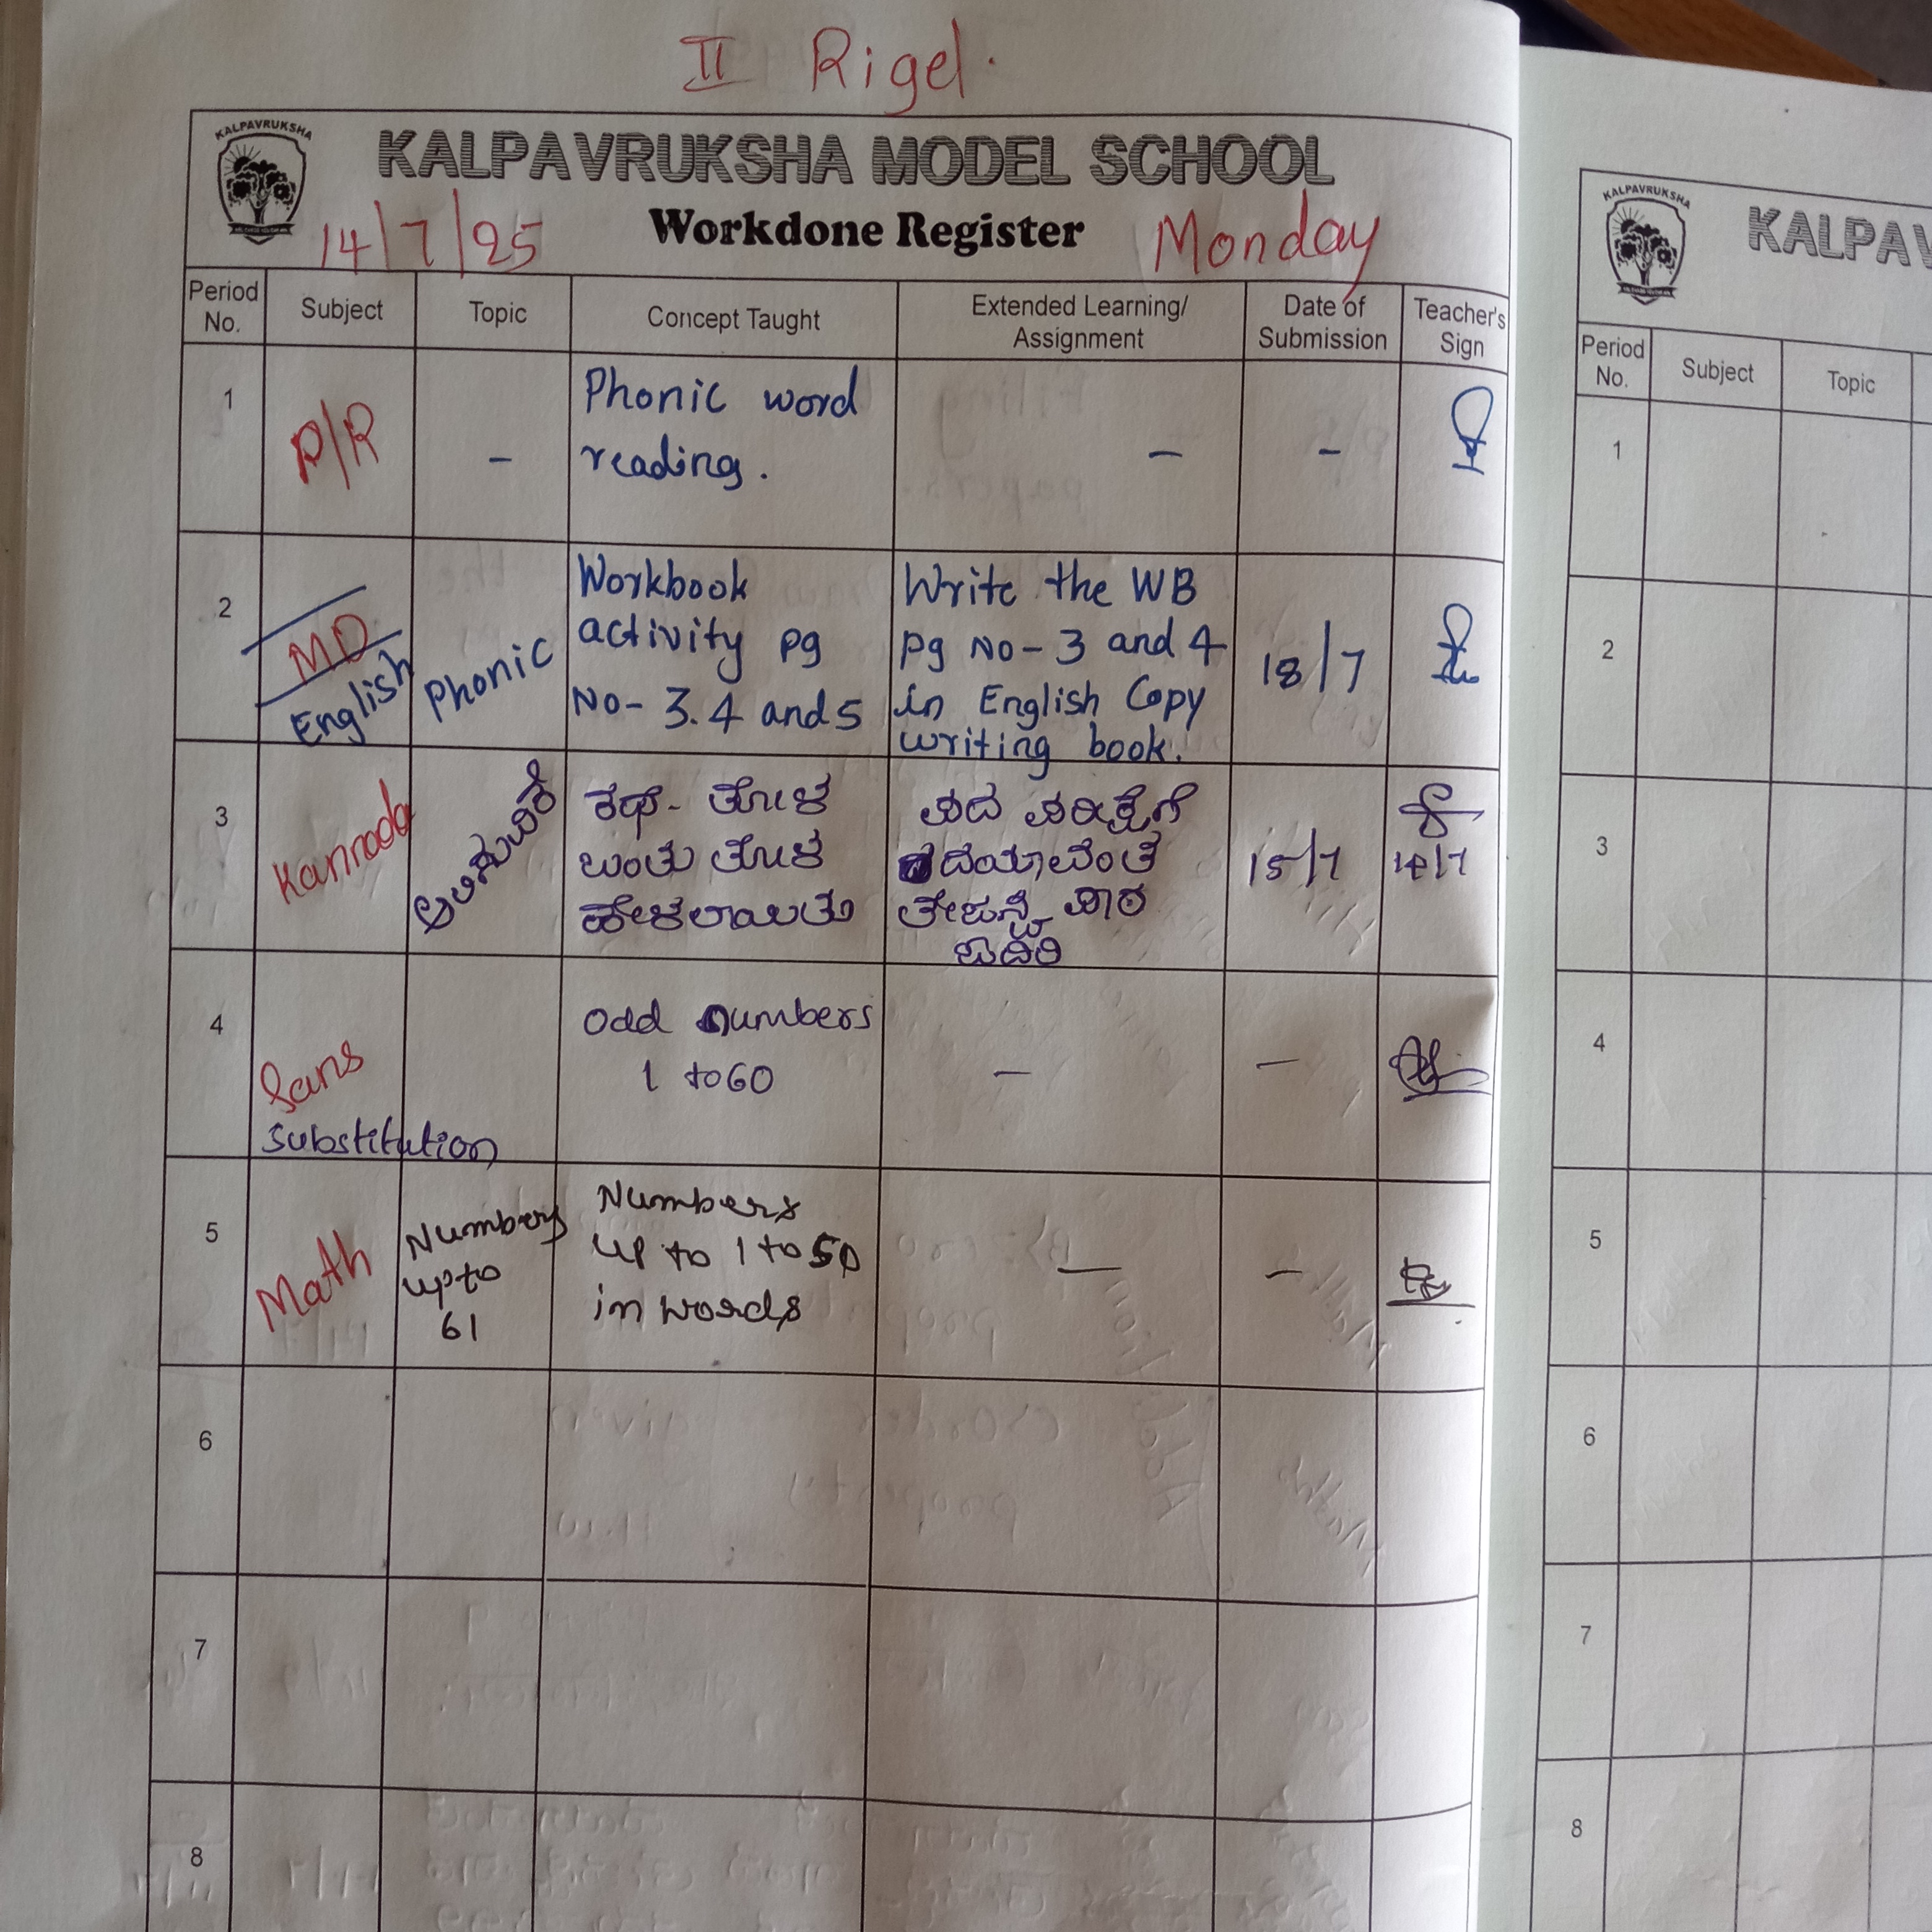 II Rigel.
KALPAVRUKSHA
KALPAVRUKSHA MODEL SCHOOL
14/7/25 Workdone Register Monday
Period No. Subject Topic Concept Taught Extended Learning/ Assignment Date of Submission Teacher's Sign
1 P/R - Phonic word
reading. - -
2 MD
English Phonic
Workbook
activity pg
No- 3.4 and 5
Write the WB
pg No- 3 and 4
in English Copy
writing book.
18/7
3 Kannada ಆಲಿಸುವಿಕೆ
ಕಥೆ- ತೋಳ
ಬಂತು ತೋಳ
ಹೇಳಲಾಯಿತು
ಪದ ಪರೀಕ್ಷೆಗೆ
ತೇಜಸ್ವಿ ಪಾಠ
ಓದಿರಿ
15/7
14/7
4 Sans
Substitution
Odd numbers
1 to 60
- -
5 Math
Numbers
upto
61
Numbers
up to 1 to 50
in words
- -
6
7
8
KALPAVRUKSHA
KALPAV
Period No. Subject Topic
1
2
3
4
5
6
7
8